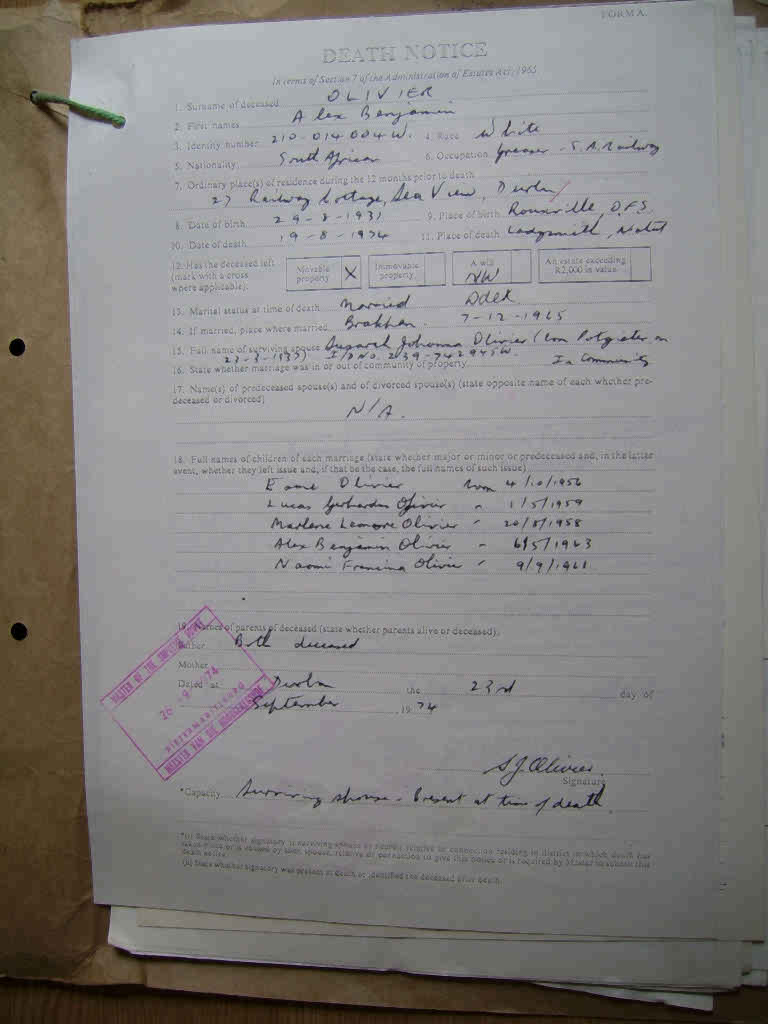 FORM A.
DEATH NOTICE
In terms of Section 7 of the Administration of Estates Act, 1965
1. Surname of deceased OLIVIER
2. First names Alex Benjamin
3. Identity number 210-014004 W. 4. Race White
5. Nationality South African 6. Occupation greaser - S.A. Railway
7. Ordinary place(s) of residence during the 12 months prior to death
27 Railway Cottage, Sea View, Durban
8. Date of birth 29-8-1931 9. Place of birth Rouxville, O.F.S.
10. Date of death 19-8-1974 11. Place of death Ladysmith, Natal
12. Has the deceased left (mark with a cross where applicable): Movable property X Immovable property A will An estate exceeding R2,000 in value
13. Marital status at time of death Married
14. If married, place where married Brakpan. 7-12-1965
15. Full name of surviving spouse Johanna Olivier (born Potgieter on
23-3-1937) I/D No. 239-742945W.
16. State whether marriage was in or out of community of property In Community
17. Name(s) of predeceased spouse(s) and of divorced spouse(s) (state opposite name of each whether pre-
deceased or divorced)
N/A.
18. Full names of children of each marriage (state whether major or minor or predeceased and, in the latter
event, whether they left issue and, if that be the case, the full names of such issue)
Olivier born 4/10/1956
Lucas Gerhardus Olivier " 1/5/1959
Marlene Olivier " 20/8/1958
Alex Benjamin Olivier " 6/5/1963
Naomi Francina Olivier " 9/9/1961
19. Names of parents of deceased (state whether parents alive or deceased),
Father Both deceased
Mother
Dated at Durban the 23rd day of
September 1974
MASTER OF THE SUPREME COURT
26 9 74
PIETERMARITZBURG
MEESTER VAN DIE HOOGGEREGSHOF
S J Olivier
Signature
*Capacity Surviving spouse - Present at time of death
*(i) State whether signatory is surviving spouse or nearest relative or connection residing in district in which death has
taken place or is caused by such spouse, relative or connection to give this notice or is required by Master to submit this
death notice.
(ii) State whether signatory was present at death or identified the deceased after death.